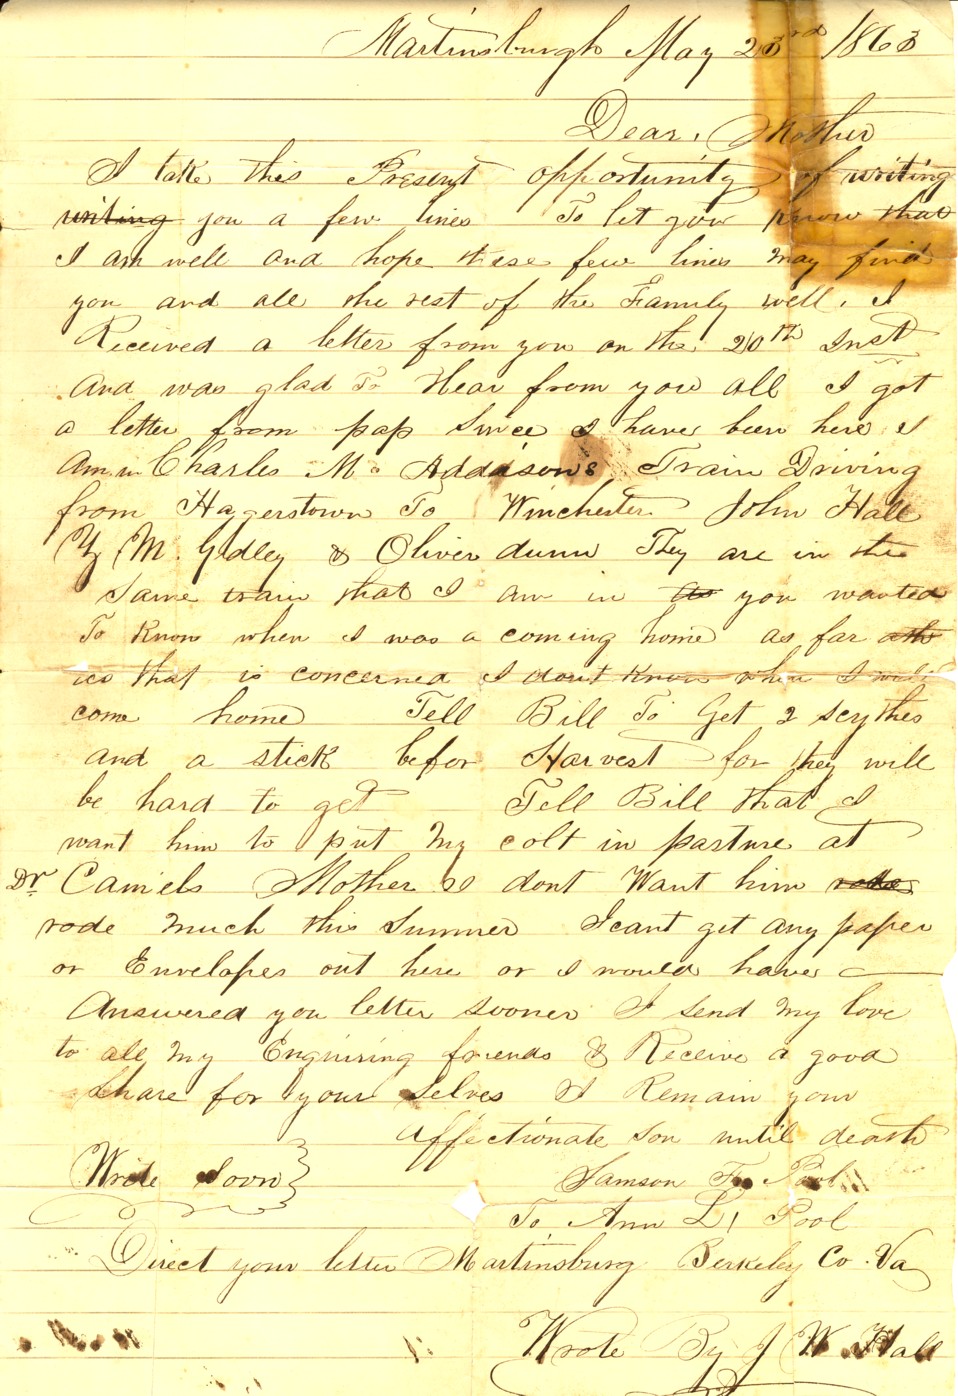 Martinsburgh May 23rd 1863
Dear, Mother
I take this Present opportunity of writing
writing you a few lines To let you know that
I am well and hope these few lines may find
you and all the rest of the Family well. I
Received a letter from you on the 20th Inst
And was glad To Hear from you all I got
a letter from pap since I have been here I
Am in Charles M. Addison's Train Driving
from Hagerstown To Winchester John Hall
M. Gdley & Oliver dunn They are in the
Same train that I am in you wanted
To Know when I was a coming home as far
as that is concerned I dont know when I will
come home Tell Bill To Get 2 scythes
and a stick befor Harvest for they will
be hard to get Tell Bill that I
want him to put my colt in pasture at
Dr Camels Mother I dont Want him
rode much this Summer I cant get any paper
or Envelopes out here or I would have
Answered you letter sooner I send my love
to all my Enquiring friends & Receive a good
Share for your Selves I Remain your
affectionate son until death
Write Soon
Samson Pool
To Ann L. Pool
Direct your letter Martinsburg Berkeley Co. Va
Wrote By J W Hall